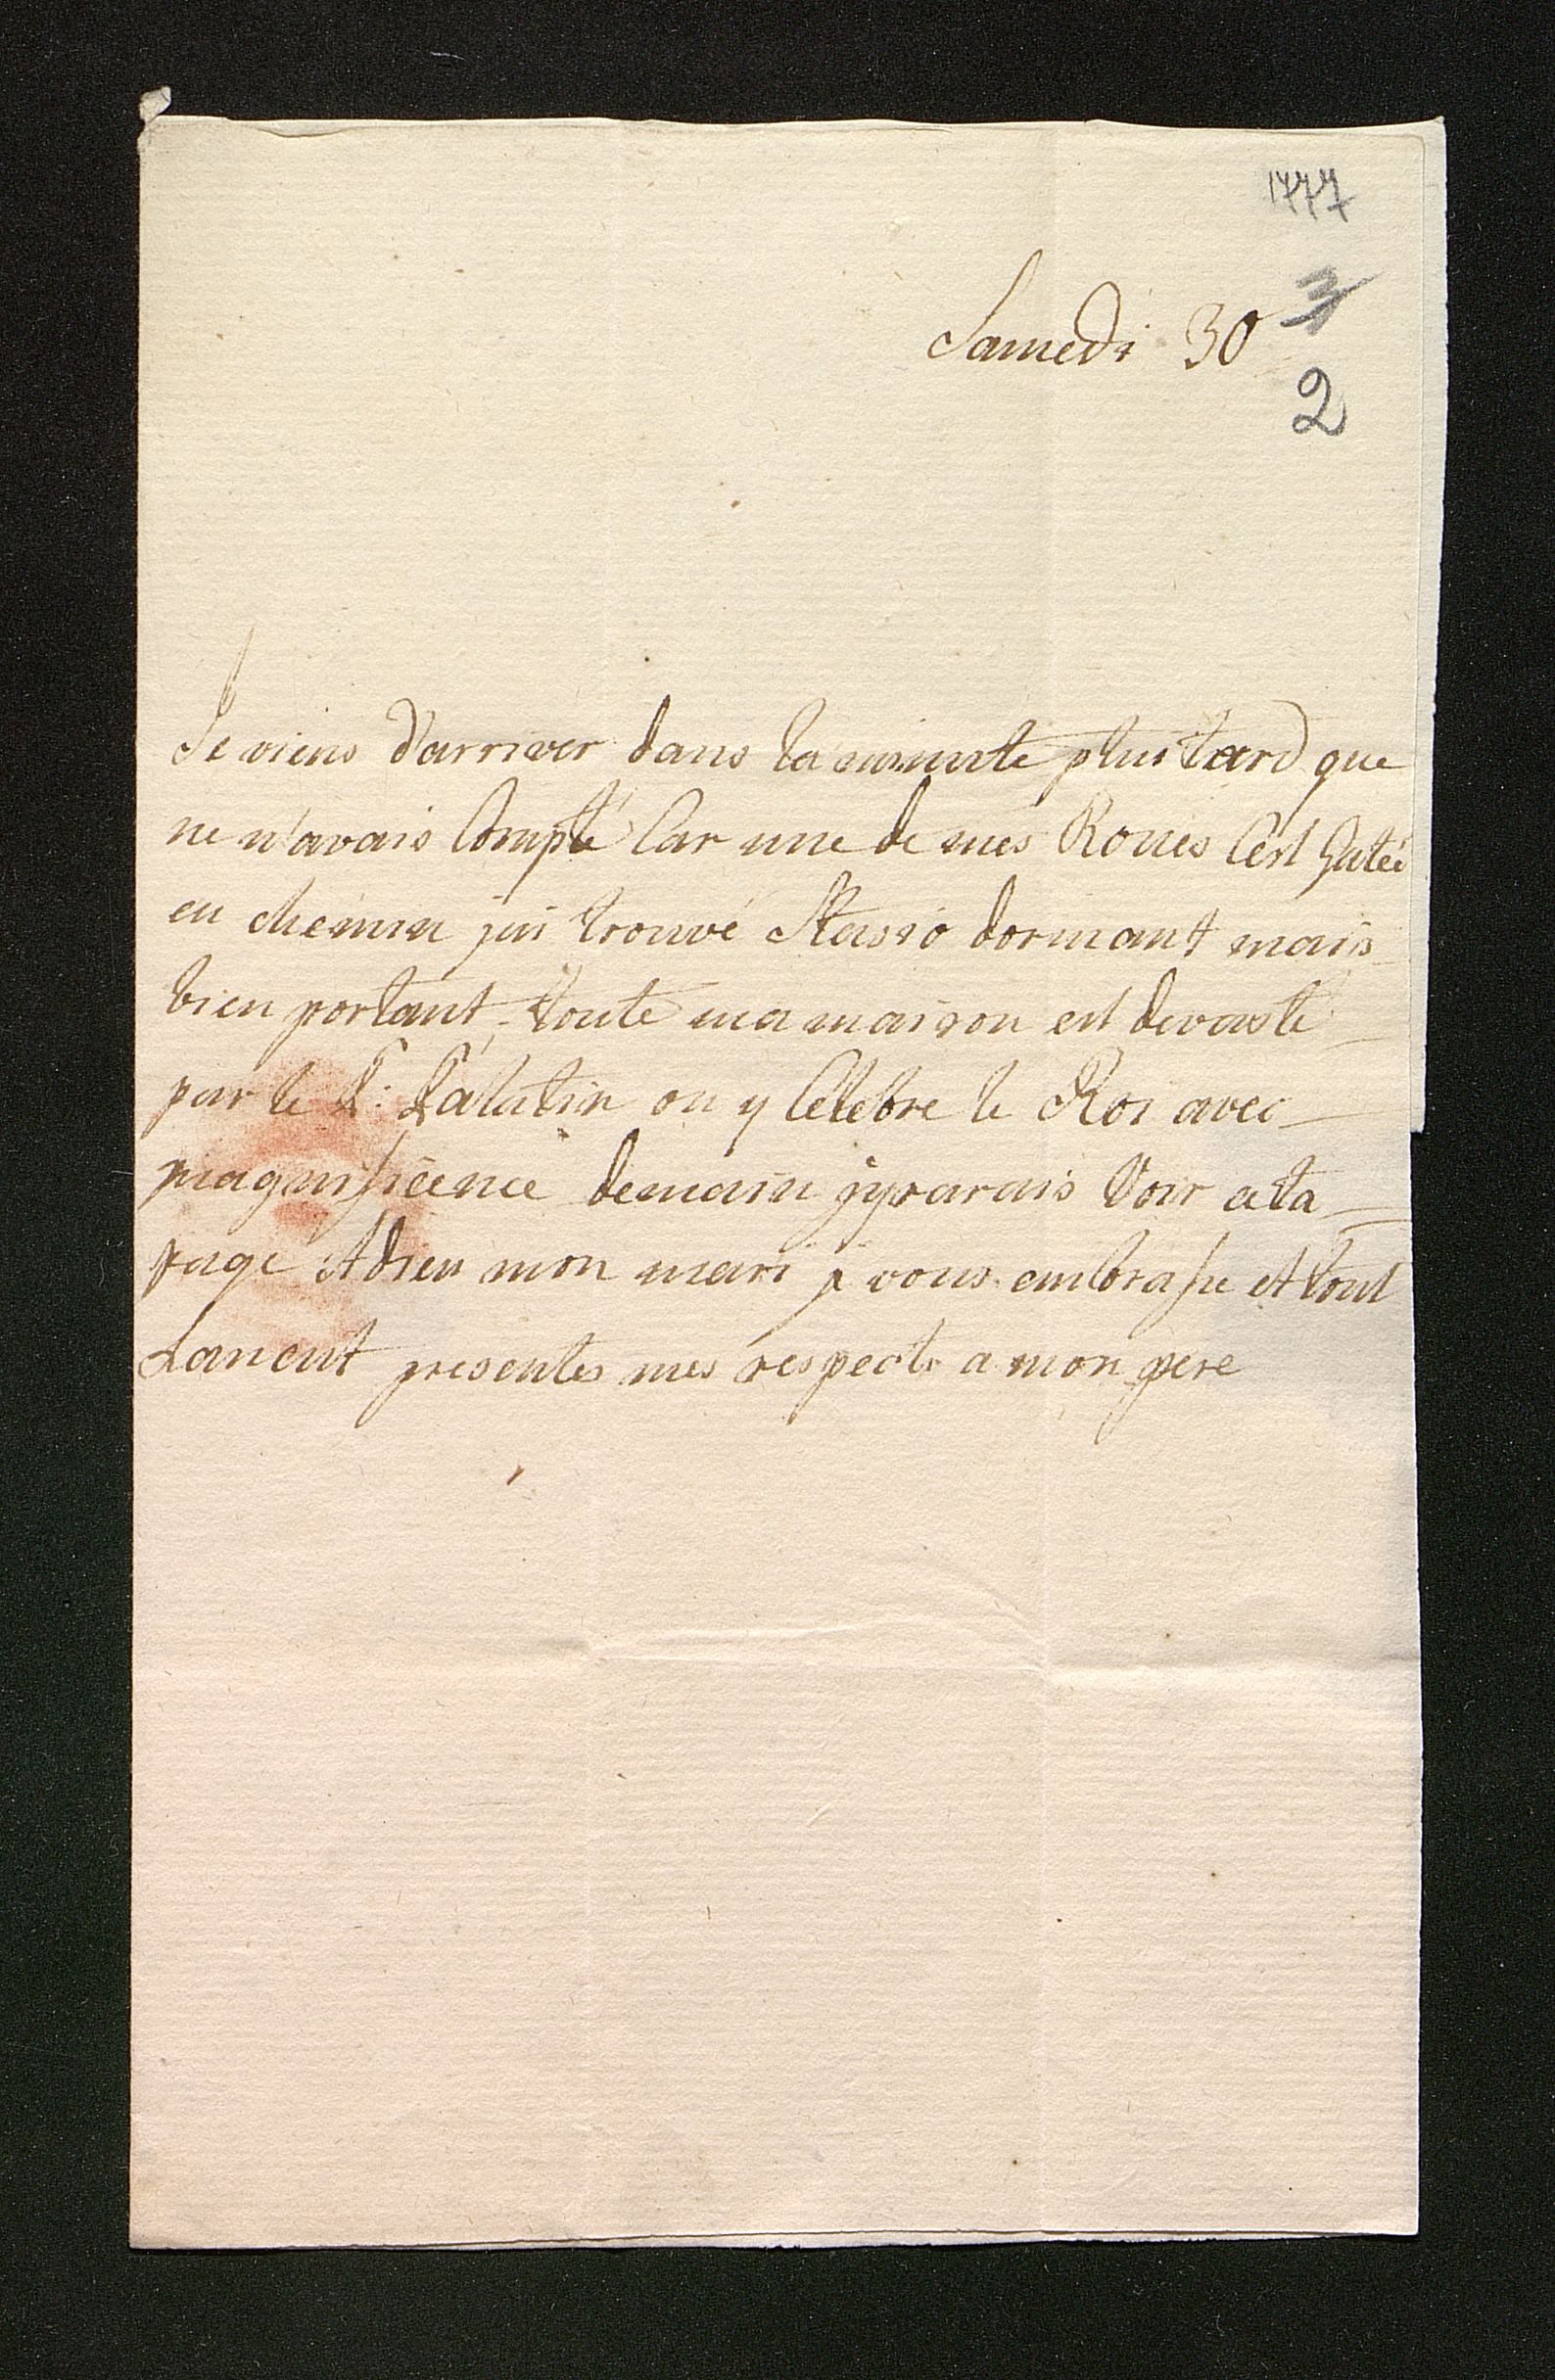 1777
Samedi 30
3
2
Je viens d'arriver dans la minute plus tard que
ne n'avais Compté Car une de mes Roues Cest Gateé
en chemin jai trouvé Stasio dormant mais
bien portant, toute ma maison est devasté
par le P: Palatin on y Celebre le Roi avec
magnificence demain jy Voir
Adieu mon mari je vous embrasse et tout
presentes mes respects a mon pere